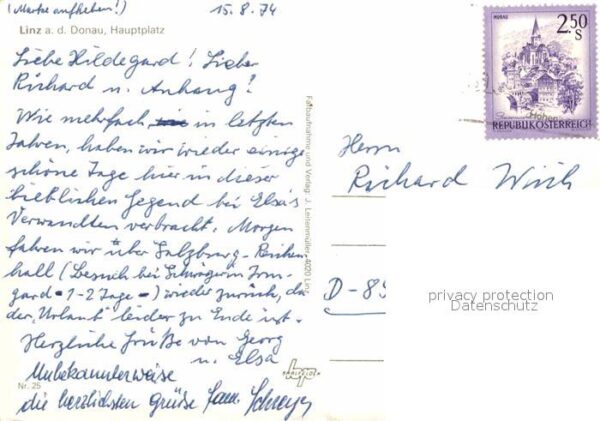 (Marke aufheben!)
15.8.74
Linz a. d. Donau, Hauptplatz
Liebe Hildegard! Lieber
Richard u. Anhang!
Wie mehrfach in letzten
Jahren, haben wir wieder einige
schöne Tage hier in dieser
lieblichen Gegend bei Elsa's
Verwandten verbracht. Morgen
fahren wir über Salzburg - Reichen-
hall (Besuch bei Schwägerin Irm-
gard - 1-2 Tage -) wieder zurück, da
der "Urlaub" leider zu Ende ist.
Herzliche Grüße von Georg
u. Elsa
Unbekannterweise
die herzlichsten Grüße Fam.
Nr. 25
Farbaufnahme und Verlag: J. Leitenmüller, 4020 Linz
MURAU
2.50
S
REPUBLIK ÖSTERREICH
Herrn
Richard
D-89
privacy protection
Datenschutz